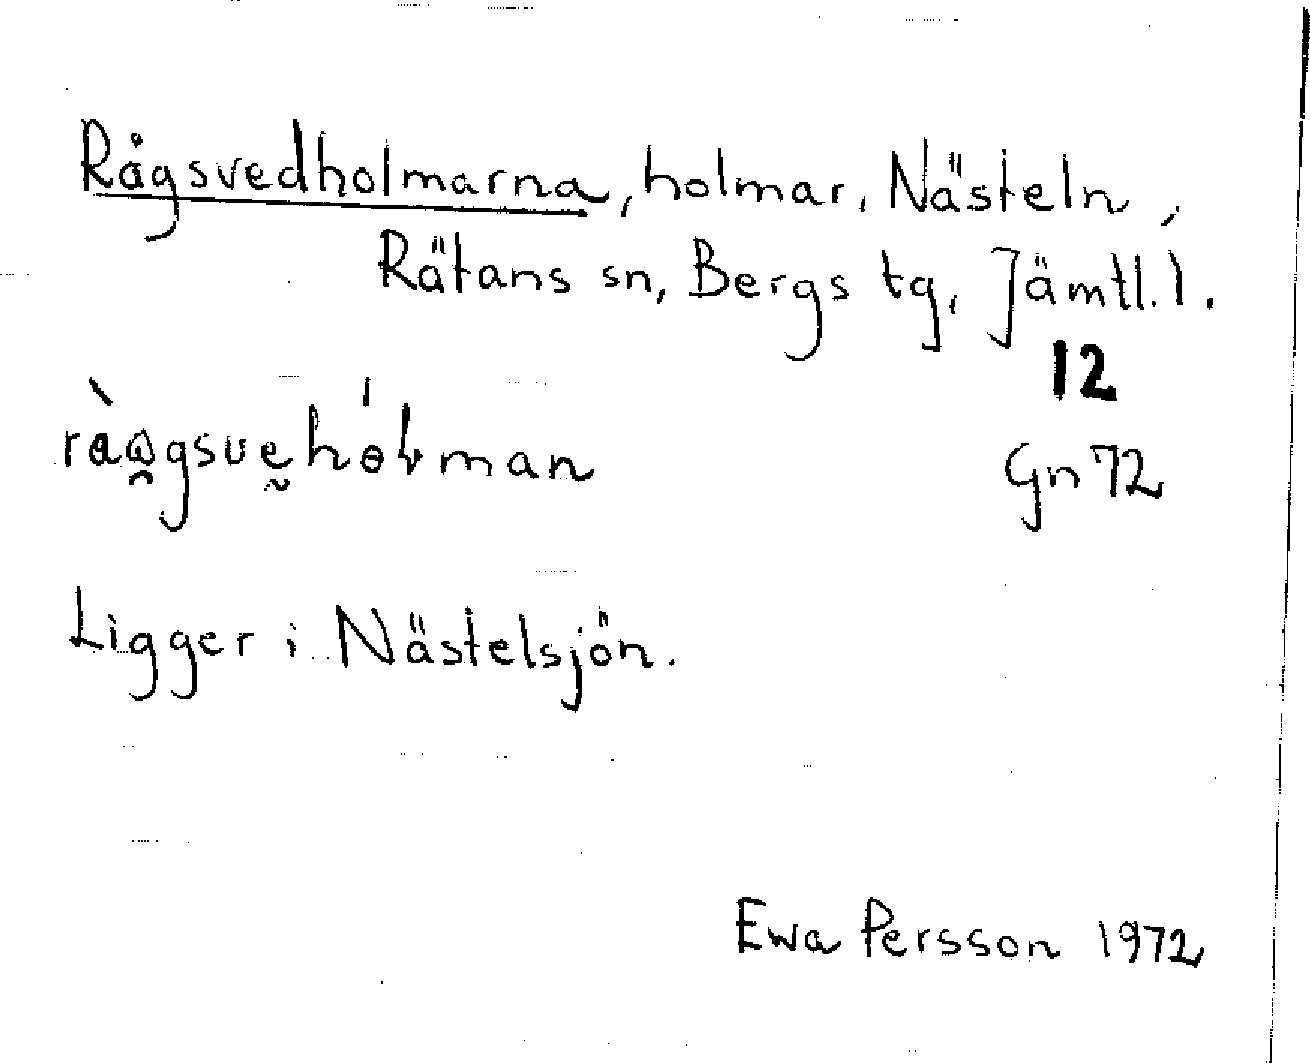 Rågsvedholmarna, holmar, Nästeln,
Rätans sn, Bergs tg, Jämtl. l.
12
Gn 72
Ligger i Nästelsjön.
Ewa Persson 1972